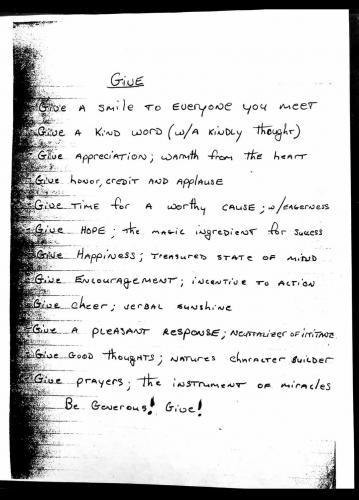 GIVE
Give A smile to everyone you meet
Give A KIND WORD (w/A kindly thought)
Give Appreciation; warmth from the heart
Give honor, credit AND Applause
Give Time for A worthy CAUSE; w/eagerness
Give HOPE; the magic ingredient for success
Give Happiness; treasured state of mind
Give Encouragement; incentive to action
Give cheer; verbal sunshine
Give A pleasant Response; neutralizer of
Give good thoughts; natures character builder
Give prayers; the instrument of miracles
Be Generous! Give!